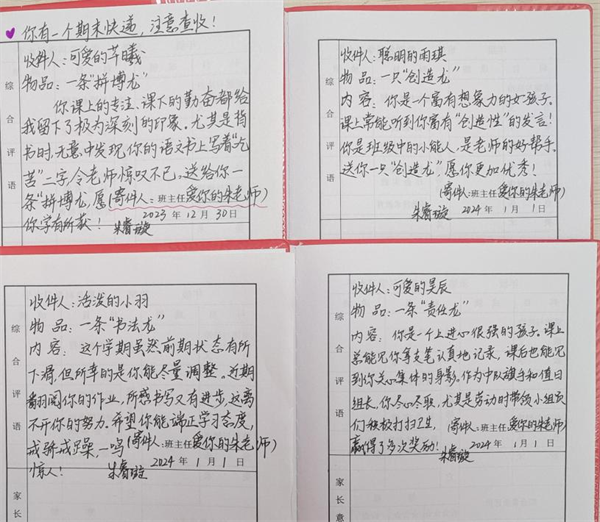 你有一个期末快递，注意查收！
综合评语
收件人：可爱的芊曦
物品：一条“拼博龙”
你课上的专注、课下的勤奋都给
我留下了极为深刻的印象。尤其是背
书时，无意中发现，你的语文书上写着“吃
苦”二字，令老师惊叹不已，送给你一
条“拼博龙，愿(寄件人：班主任爱你的朱老师)
你学有所获！
朱睿璇
2023 年 12 月 30 日
综合评语
收件人：聪明的雨琪
物品：一只“创造龙”
内容：你是一个富有想象力的女孩子。
课上常能听到你富有“创造性”的发言！
你是班级中的小能人，是老师的好帮手。
送你一只“创造龙”，愿你更加优秀！
(寄件人：班主任爱你的朱老师)
朱睿璇 2024 年 1 月 1 日
综合评语
收件人：活泼的小羽
物品：一条“书法龙”
内容：这个学期虽然前期状态有所
下滑，但所幸的是你能尽量调整，近期
翻阅你的作业，所感书写又有进步，这离
不开你的努力。希望你能端正学习态度，
戒骄戒躁，一鸣(寄件人：班主任爱你的朱老师)
惊人！
朱睿璇
2024 年 1 月 1 日
家长
综合评语
收件人：可爱的昊辰
物品：一条“责任龙”
内容：你是一个上进心很强的孩子。课上
总能见你拿支笔认真地记录，课后也能见
到你关心集体的身影。作为中队旗手和值日
组长，你尽心尽职，尤其是劳动时带领小组员
们积极打扫卫生，(寄件人：班主任爱你的朱老师)
赢得了多次奖励！
朱睿璇
2024 年 1 月 1 日
家长意